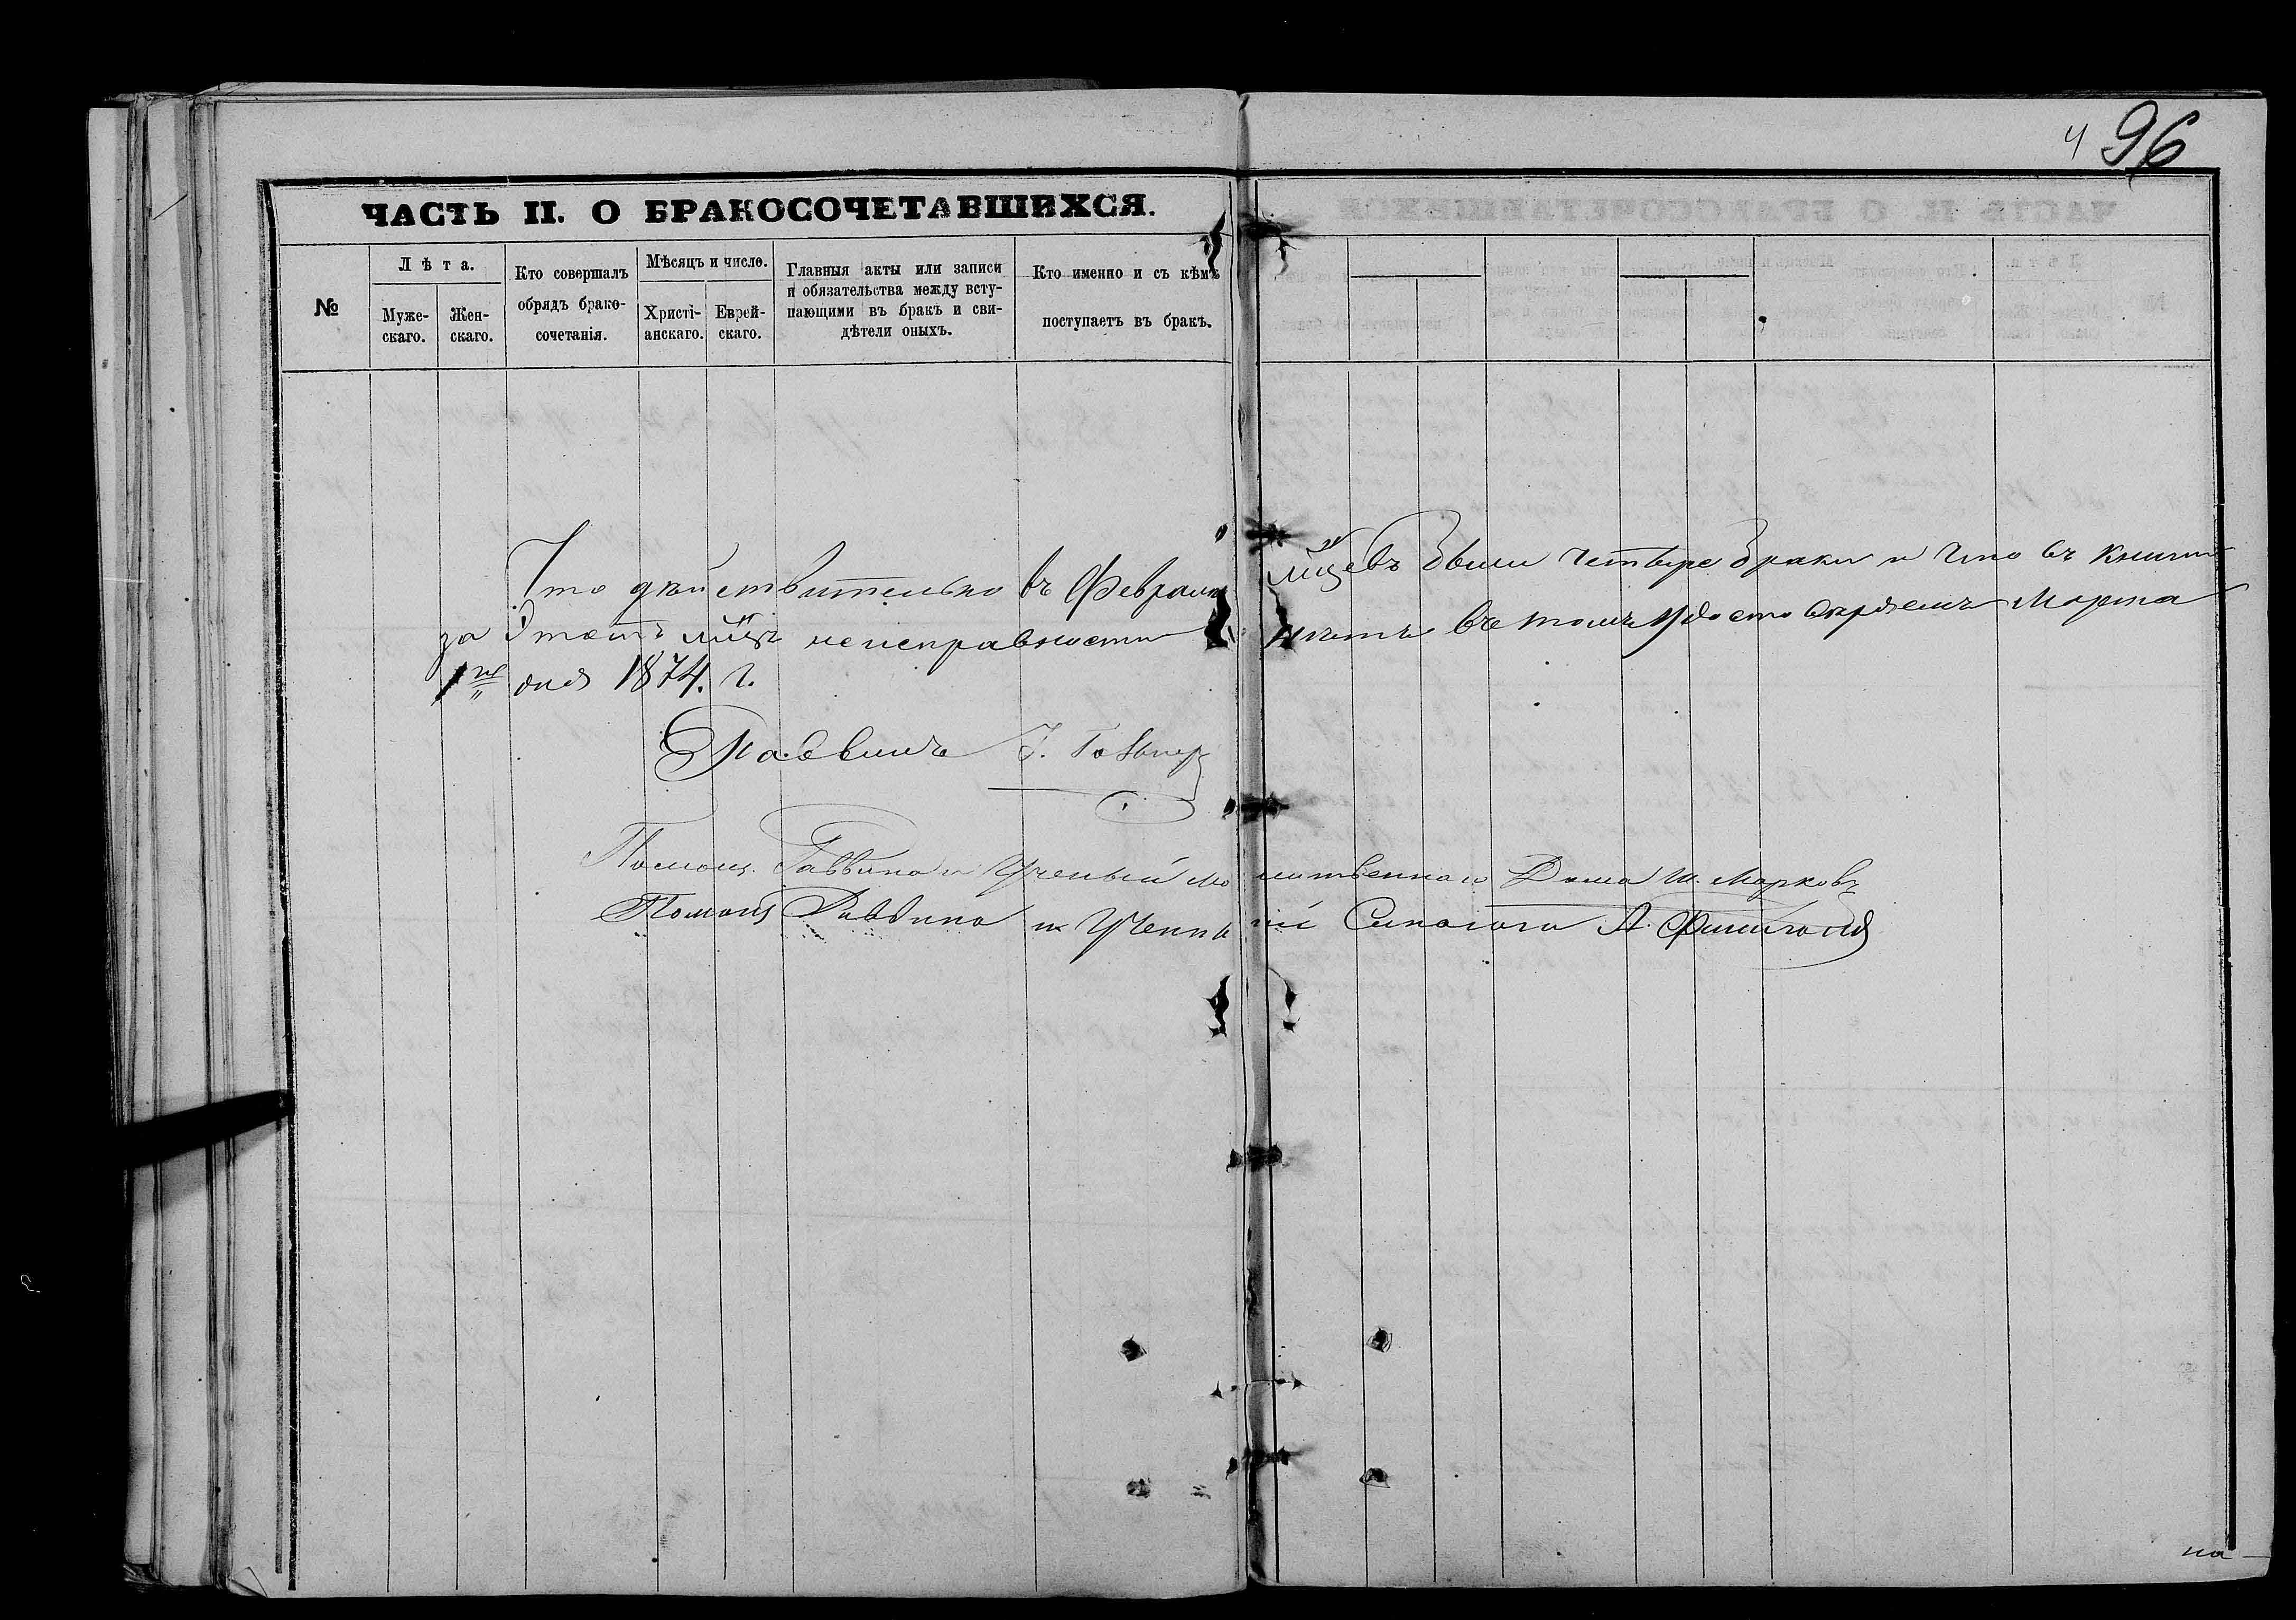 ч 96
ЧАСТЬ II. О БРАКОСОЧЕТАВШИХСЯ.
№
Лѣта.
Муже-
скаго.
Жен-
скаго.
Кто совершалъ
обрядъ брако-
сочетанія.
Мѣсяцъ и число.
Христі-
анскаго.
Еврей-
скаго.
Главныя акты или записи
и обязательства между всту-
пающими въ бракъ и сви-
дѣтели оныхъ.
Кто именно и съ кѣмъ
поступаетъ въ бракъ.
Что дѣйствительно въ Февралѣ м-цѣ были четыре браки и что въ книги
за этотъ м-цъ неисправности нѣтъ въ томъ удостовѣряемъ Марта
1го дня 1874. г.
Раввинъ
Помощ. Раввина и Ученый молитвеннаго Дома Ш. Марковъ
Помощ Раввина и Ученый Синагоги А.
на